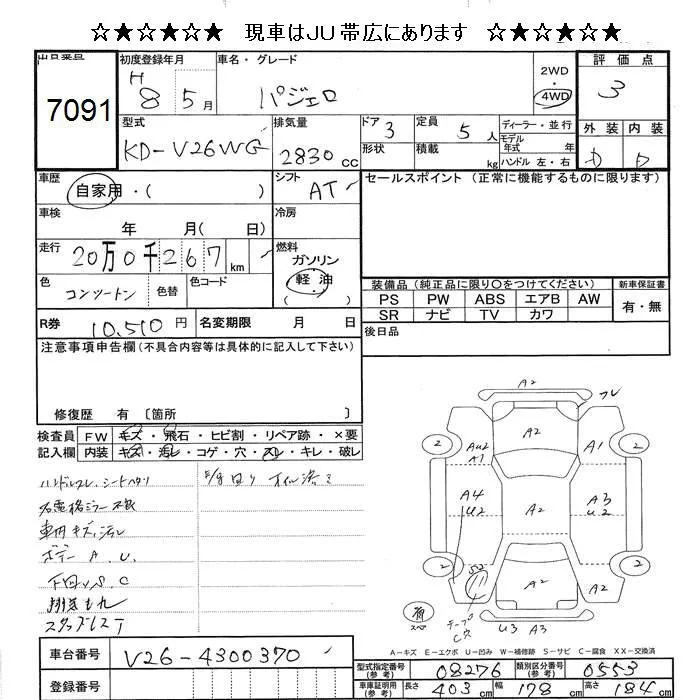 ☆★☆★☆ 現車はJU帯広にあります ☆★☆★☆
出品番号 初度登録年月 車名・グレード 評価点
7091 H 8 5月 パジェロ 2WD ・ 4WD 3
型式 排気量 ドア 定員 ディーラー・並行 外装 内装
KD-V26WG 2830cc 3 5人 モデル年式 年式 D D
形状 積載 kg ハンドル 左・右
車歴 自家用・( ) シフト AT セールスポイント(正常に機能するものに限ります)
車検 年 月( 日) 冷房
走行 20万0千267 km 燃料 ガソリン 軽油
色 コンツートン 色替 色コード 装備品(純正品に限り○をつけてください) 新車保証書
PS PW ABS エアB AW 有・無
SR ナビ TV カワ
R券 10,510円 名変期限 月 日 後日品
注意事項申告欄(不具合内容等は具体的に記入して下さい)
修復歴 有 〔箇所 〕
検査員 FW キズ・飛石・ヒビ割・リペア跡・×要
記入欄 内装 キズ・汚レ・コゲ・穴・スレ・キレ・破レ
ハンドルスレ、シートヘタリ
車内キズ、汚レ
ボデー A.U.
スタッドレス
A2 フレ
A2
2 AU2 A1 A1 2
A4 U2 A2 A3 U2
2 S2 A2 A2 2
有 スペ テープ C穴 U3 A3
A-キズ E-エクボ U-凹み W-補修跡 S-サビ C-腐食 XX-交換済
車台番号 V26-4300370
登録番号
型式指定番号(参考) 08276 類別区分番号(参考) 0553
車庫証明用(参考) 長さ 403cm 幅 178cm 高さ 184cm